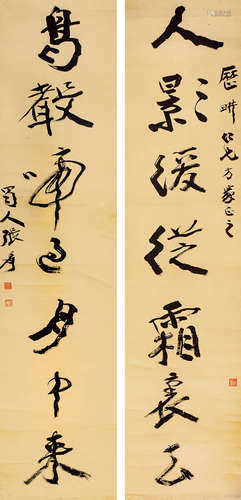 人影緩從霜裏去
歷畊仁兄方家正之
鳥聲啼過月中來
蜀人張爰